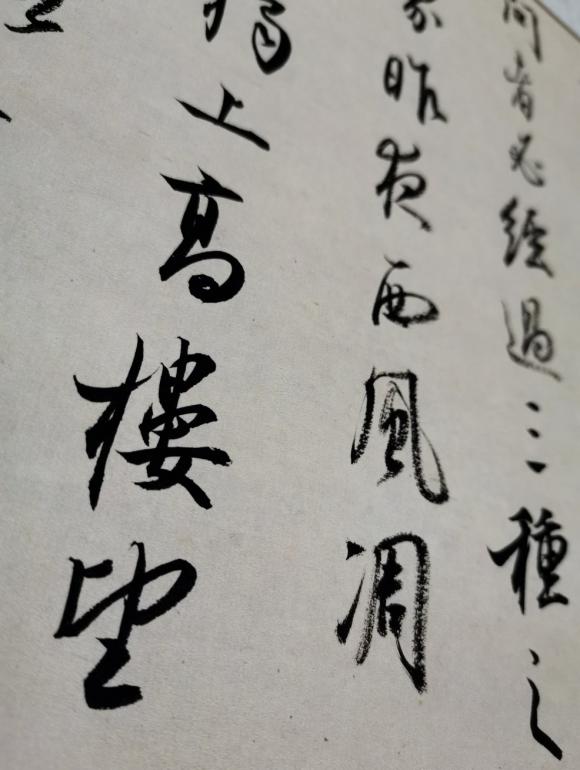 問者必經過三種之
昨夜西風凋
獨上高樓望